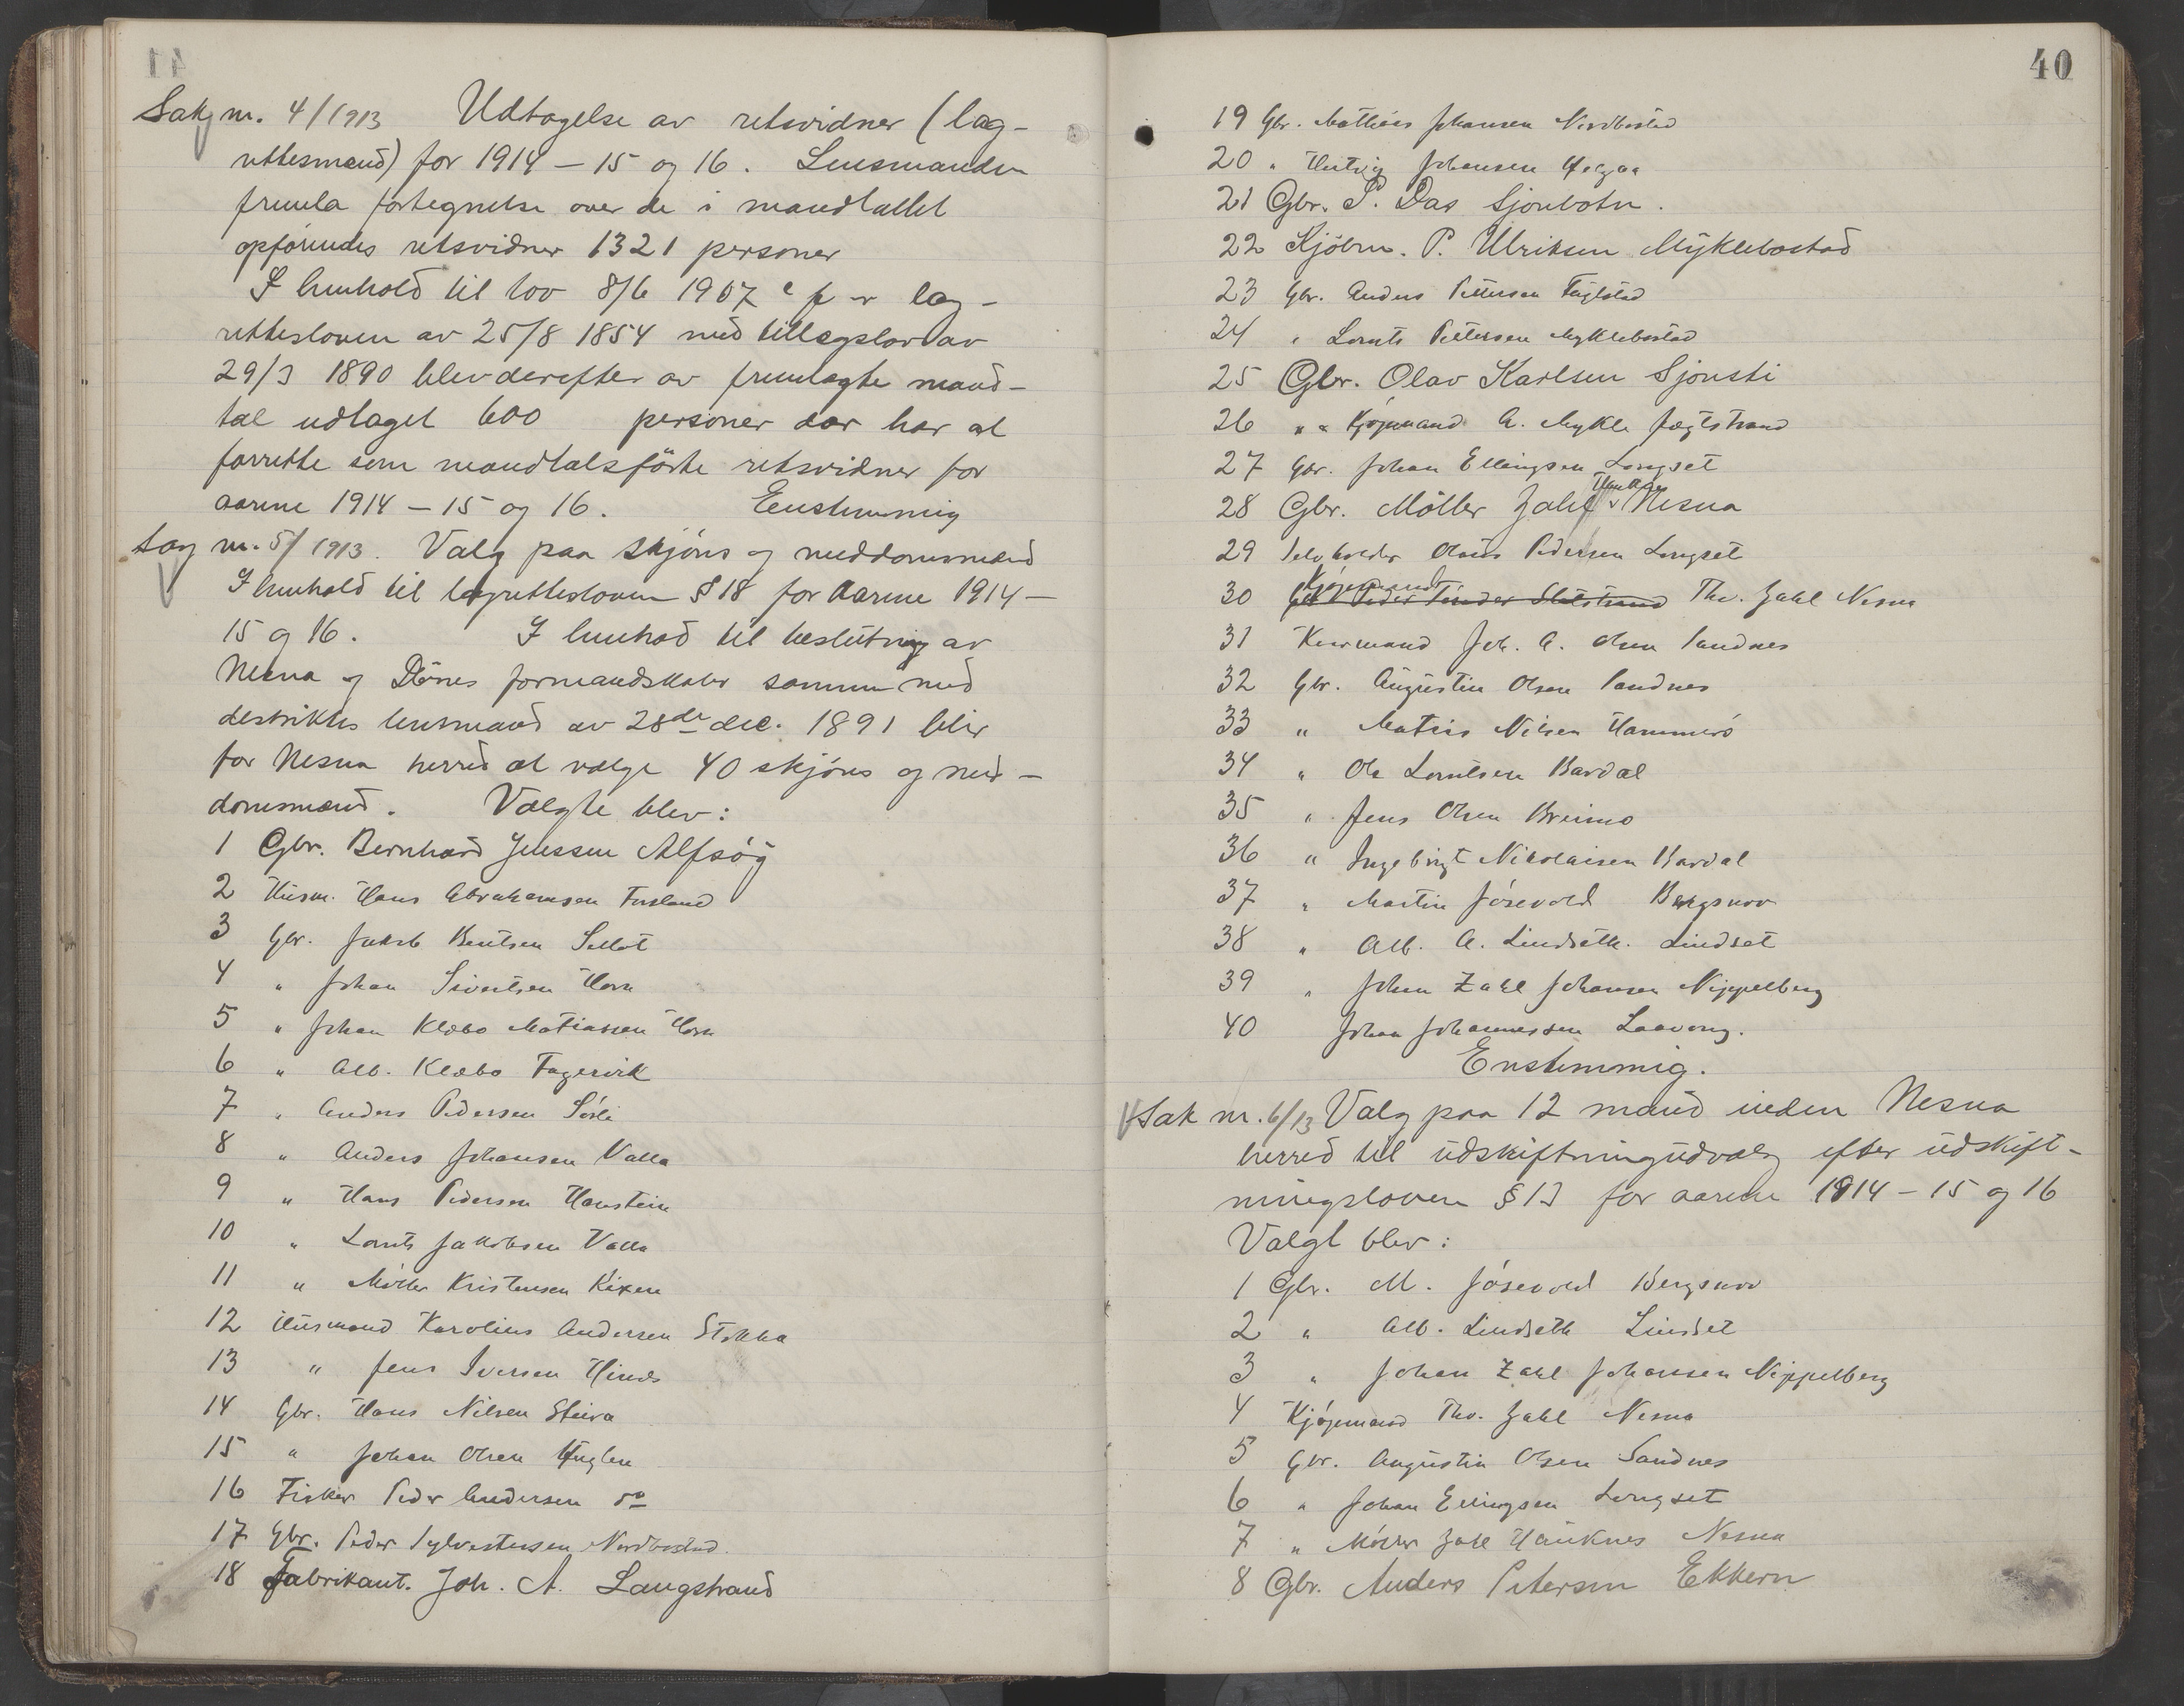 Sak nr. 4/1913 Udtagelse av retsvidner (lag-
rettesmænd) for 1914 - 15 og 16. Lensmanden
fremla fortegnelse over de i mandtallet
opförendes retsvidner 1321 personer
I henhold til lov 8/6 1907 lag-
rettesloven av 25/8 1854 med tillægslov av
29/3 1890 blev derefter av fremlagte mand-
tal udtaget 600 personer der har at
forrette som mandtalsförte retsvidner for
aarene 1914 - 15 og 16. Eenstemmig
Sag nr. 5/1913. Valg paa skjöns og meddomsmænd
I henhold til lagrettesloven § 18 for Aarene 1914 -
15 og 16. I henhod til beslutning av
Nesna og Dönes formandskaber sammen med
destriktes lensmand av 28de dec. 1891 blir
for Nesna herred at vælge 40 skjöns og med-
domsmænd. Valgte blev:
1 Gbr. Bernhard Jenssen Alfsög
2 Husm. Hans Abrahamsen Furland
3 Gbr. Jakob Bentsen Sellöt
4 " Johan Sivertsen Horn
5 " Johan Klæbo Matiassen Horn
6 " Alb. Klæbo Fagervik
7 " Anders Pedersen Sörli
8 " Anders Johansen Valla
9 " Hans Pedersen Hanstein
10 " Lornts Jakobsen Valla
11 " Möller Kristensen
12 Husmand Karolius Andersen Stokka
13 " Jens Iversen
14 Gbr. Hans Nilsen Steira
15 " Johan Olsen Huglen
16 Fisker Peder Andersen do
17 Gbr. Peder Sylvestersen Nordbostad
18 Fabrikant. Joh. A. Langstrand
40
19 Gbr. Mathias Johansen Nordbostad
20 " Johansen
21 Gbr. P. Das Sjonbotn.
22 Kjöbm. P. Ulriksen Myklebostad
23 Gbr. Anders Pettersen
24 " Lornts Pettersen Myklebostad
25 Gbr. Olav Karlsen Sjonsti
26 " " Kjöpmand A. Mykle Jægtstrand
27 Gbr. Johan Ellingsen Longset
28 Gbr. Möller Zahl Nesna
29 Selveier Pedersen Longset
30 Kjöpmand Thv. Zahl Nesna
31 Joh. A. Olsen Sandnes
32 Gbr. Augustin Olsen Sandnes
33 " Matias Nilsen Hammerö
34 " Ole Lorntsen Bardal
35 " Jens Olsen Breimo
36 " Ingebrigt Nikolaisen Bardal
37 " Martin Jösevold Bergsnov
38 " Alb. A. Lindseth. Lindset
39 " Johan Zahl Johansen Nippelberg
40 Johan Johannessen Laavong.
Enstemmig.
Sak nr. 6/13 Valg paa 12 mænd inden Nesna
herred til udskiftningudvalg efter udskift-
ningsloven § 13 for aarene 1914 - 15 og 16
Valgt blev:
1 Gbr. M. Jösevold Bergsnov
2 " Alb. Lindseth Lindset
3 " Johan Zahl Johansen Nippelberg
4 Kjöpmand Thv. Zahl Nesna
5 Gbr. Augustin Olsen Sandnes
6 " Johan Ellingsen Longset
7 " Möller Zahl Hauknes Nesna
8 Gbr. Anders Petersen Ekkern